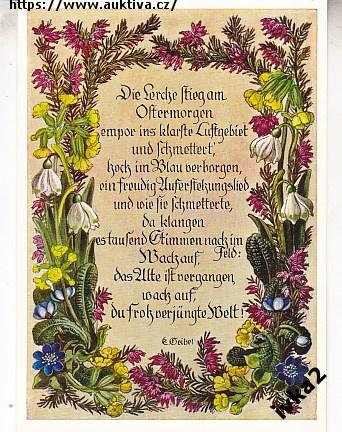 https://www.auktiva.cz/
Die Lerche stieg am
Ostermorgen
empor ins klarste Luftgebiet
und schmettert',
hoch im Blau verborgen,
ein freudig Auferstehungslied
und wie sie schmetterte,
da klangen
es tausend Stimmen nach im
Feld:
Wach auf,
das Alte ist vergangen,
wach auf,
du froh verjüngte Welt!
E. Geibel
ivka2